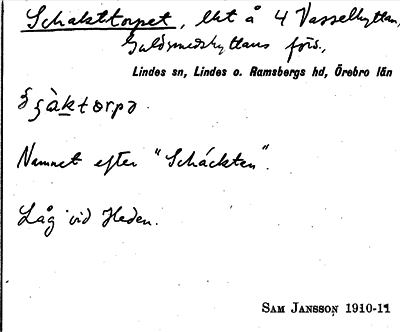 Schakttorpet, lkt å 4 Vasselhyttan,
Guldsmedshyttans förs.,
Lindes sn, Lindes o. Ramsbergs hd, Örebro län
Namnet efter "Schäckten".
Låg vid Heden.
SAM JANSSON 1910-11